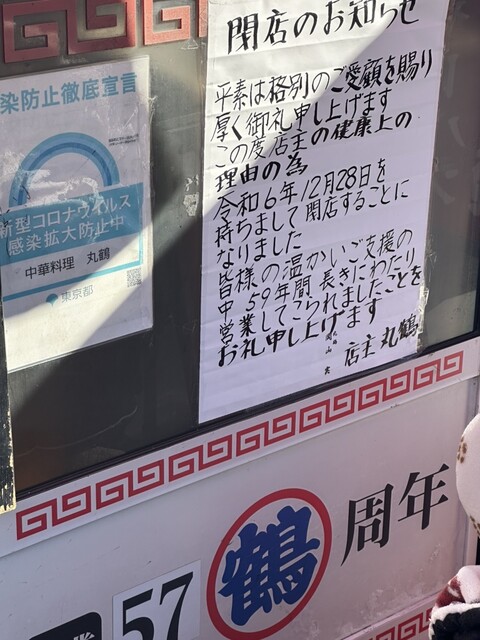 閉店のお知らせ
平素は格別のご愛顧を賜り
厚く御礼申し上げます
この度店主の健康上の
理由の為
令和6年12月28日を
持ちまして閉店することに
なりました
皆様の温かいご支援の
中、59年間、長きにわたり
営業してこられましたことを
お礼申し上げます
店主 丸鶴
染防止徹底宣言
新型コロナウイルス
感染拡大防止中
中華料理 丸鶴
東京都
57
鶴
周年